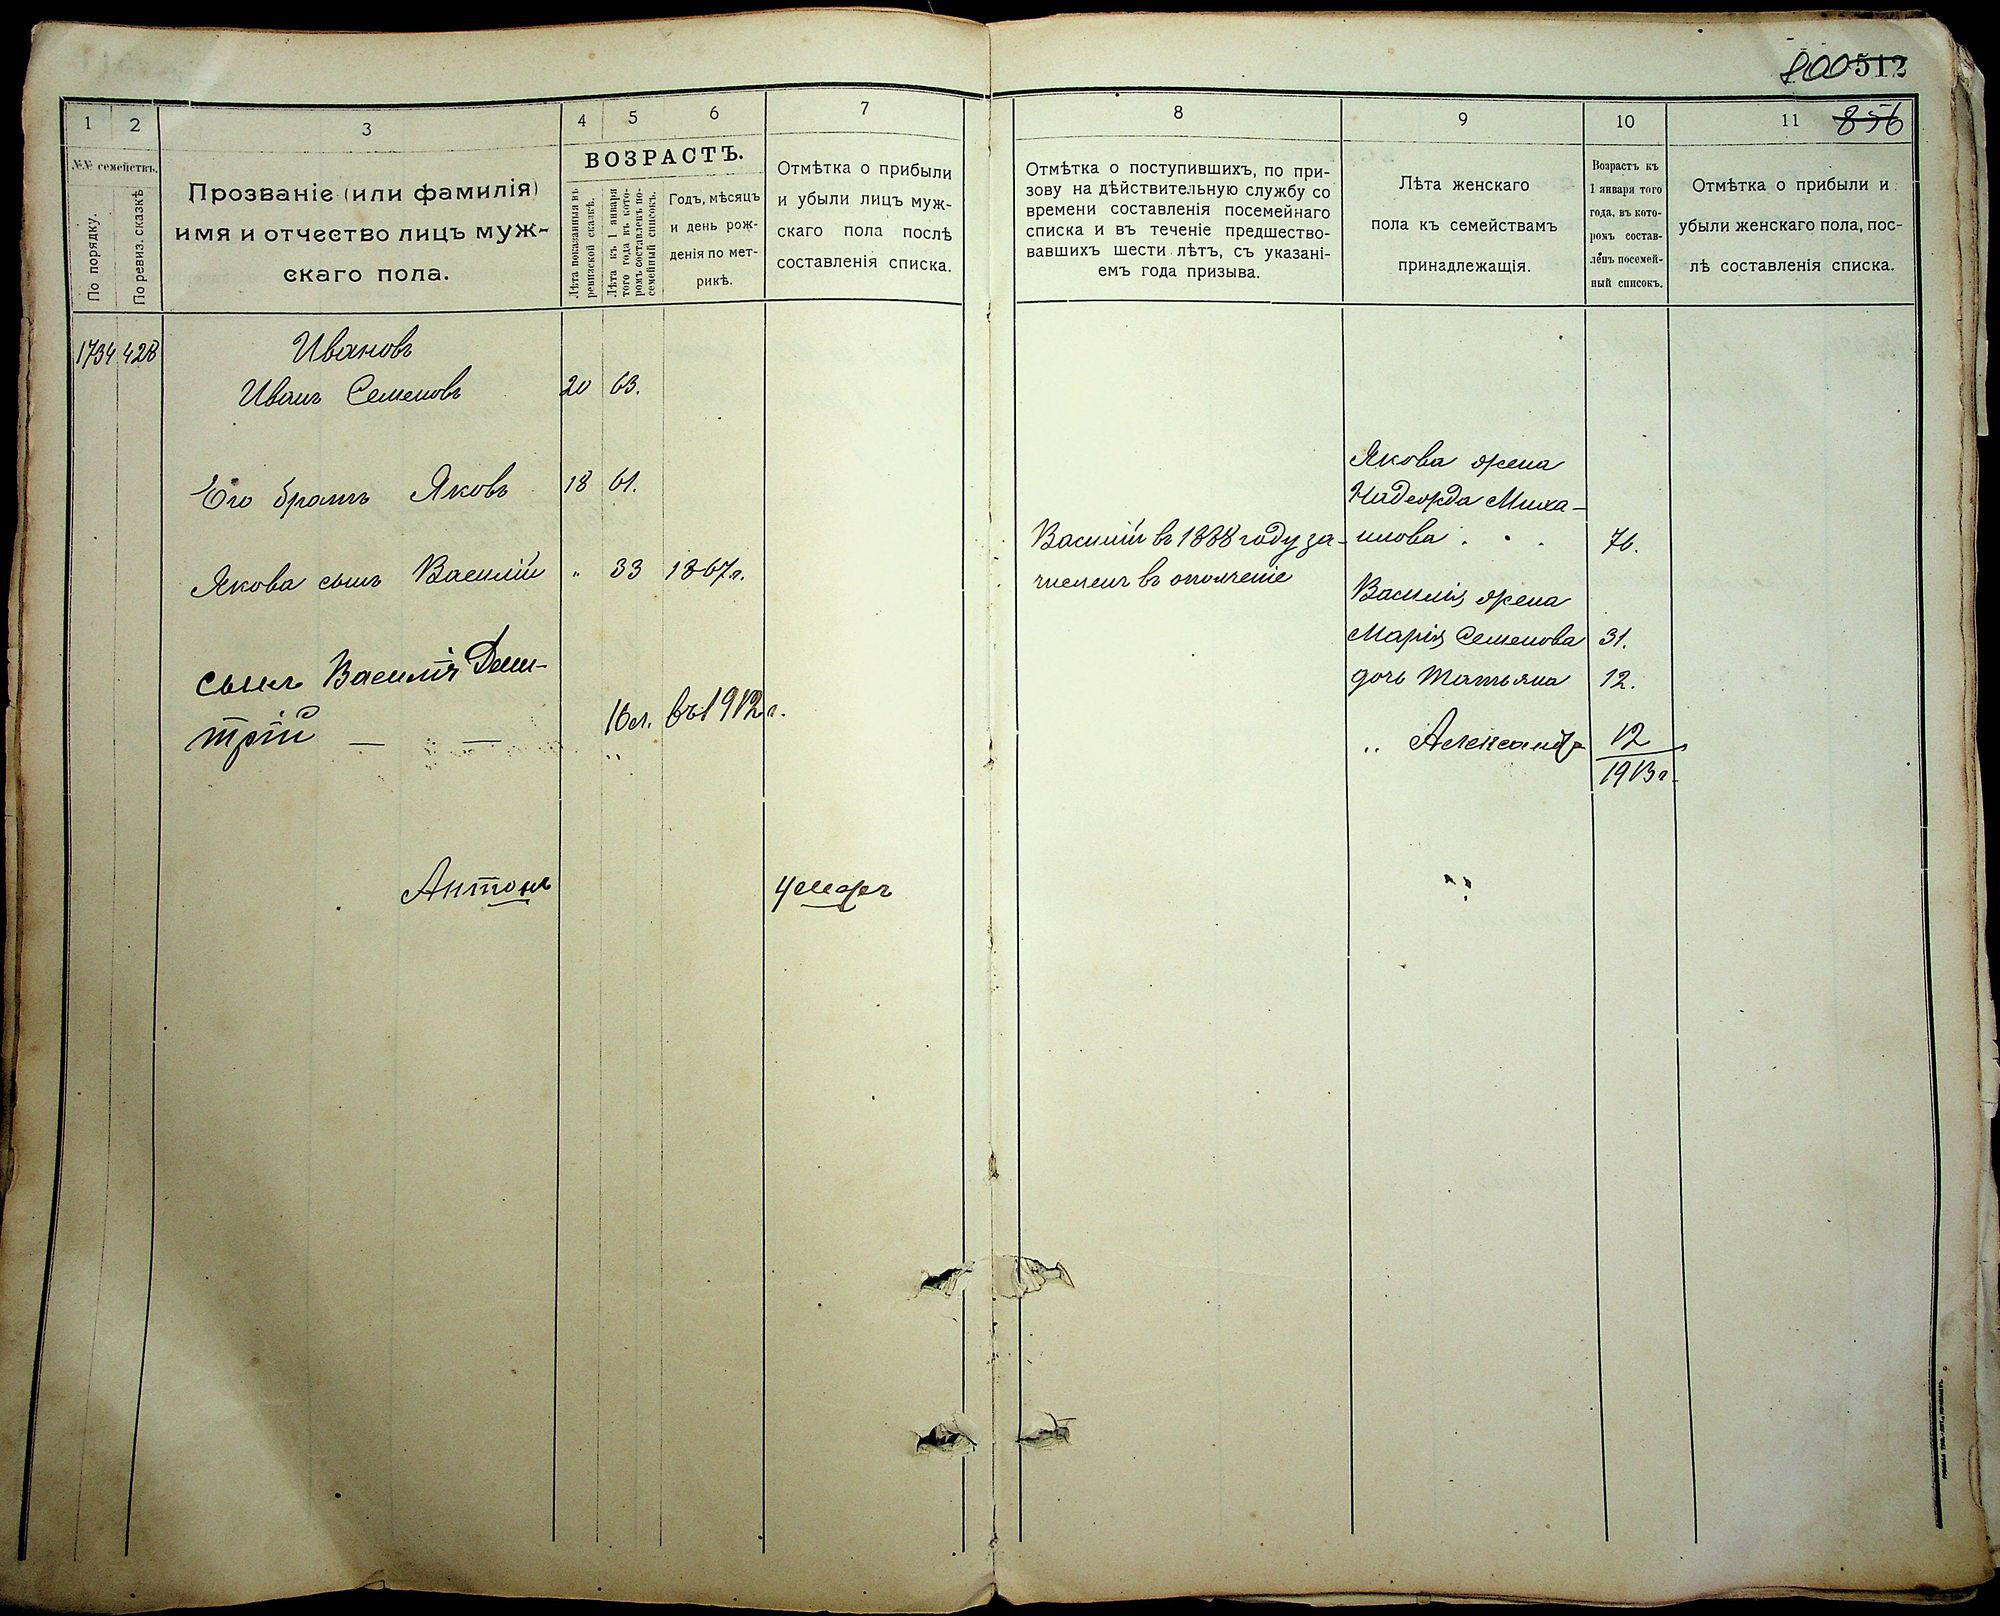 800 512
856
1
2
3
4
5
6
7
8
9
10
11
№№ семействъ.
По порядку.
По ревиз. сказкѣ
Прозваніе (или фамилія)
имя и отчество лицъ муж-
скаго пола.
ВОЗРАСТЪ.
Лѣта показанныя въ
ревизской сказкѣ.
Лѣта къ 1 января
того года въ кото-
ромъ составленъ по-
семейный списокъ.
Годъ, мѣсяцъ
и день рож-
денія по мет-
рикѣ.
Отмѣтка о прибыли
и убыли лицъ муж-
скаго пола послѣ
составленія списка.
Отмѣтка о поступившихъ, по при-
зову на дѣйствительную службу со
времени составленія посемейнаго
списка и въ теченіе предшество-
вавшихъ шести лѣтъ, съ указані-
емъ года призыва.
Лѣта женскаго
пола къ семействамъ
принадлежащія.
Возрастъ къ
1 января того
года, въ кото-
ромъ состав-
ленъ посемей-
ный списокъ.
Отмѣтка о прибыли и
убыли женскаго пола, пос-
лѣ составленія списка.
1734 428 Ивановъ
Иванъ Семеновъ 20 63.
Его братъ Яковъ 18 61.
Якова сынъ Василій " 33 1867г.
сынъ Василія Дми-
трій — — 16 л. въ 1912 г.
Антонъ
Василій въ 1888 году за-
численъ въ ополченіе
Якова жена
Надежда Миха-
илова . . . 76.
Василія жена
Марія Семенова 31.
дочь Татьяна 12.
" Александра 12
1913 г.